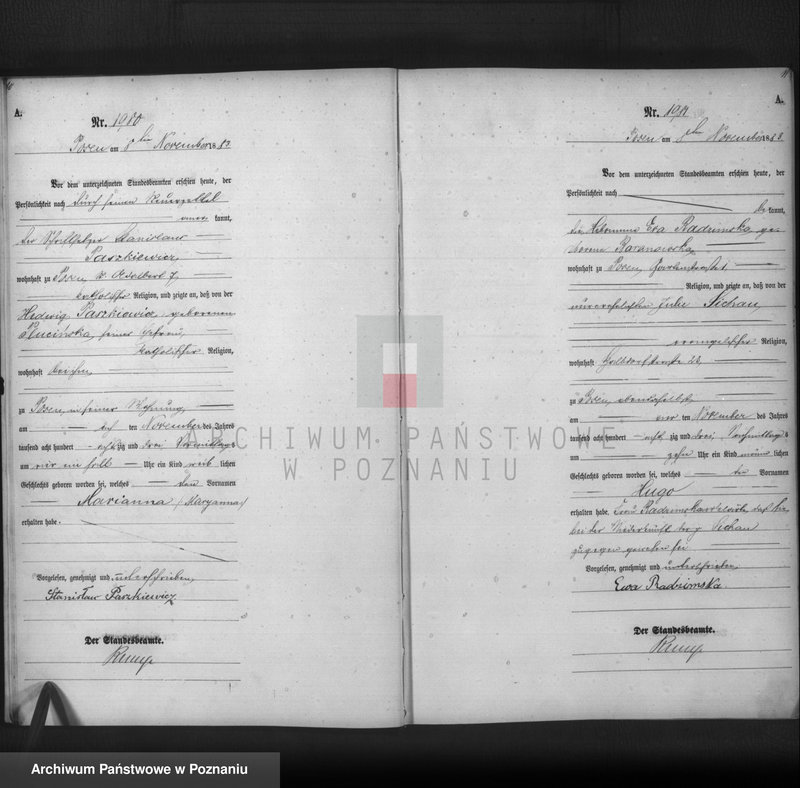 A.
Nr. 1980
Posen am 8ten November 1883
Vor dem unterzeichneten Standesbeamten erschien heute, der
Persönlichkeit nach durch seinen Steuerzettel
aner kannt,
der Schriftsetzer Stanislaus
Paszkiewicz
wohnhaft zu Posen, St. Adalbert 7,
katholischer Religion, und zeigte an, daß von der
Hedwig Paszkiewicz, geborenen
seiner Ehefrau,
katholischer Religion,
wohnhaft bei ihm,
zu Posen, in seiner Wohnung
am ten November des Jahres
tausend acht hundert achtzig und drei, Vormittags
um Uhr ein Kind weib lichen
Geschlechts geboren worden sei, welches den Vornamen
Marianna (Maryanna)
erhalten habe.
Vorgelesen, genehmigt und unterschrieben
Stanisław Paszkiewicz
Der Standesbeamte.
A.
Nr. 1981
Posen am 8ten November 1883
Vor dem unterzeichneten Standesbeamten erschien heute, der
Persönlichkeit nach
be kannt,
die Hebamme Eva Radzimska, ge-
borene Baranowska,
wohnhaft zu Posen, Gartenstraße 1
Religion, und zeigte an, daß von der
unverehelichten Julie Sichau,
evangelischer Religion,
wohnhaft
zu Posen, ebendaselbst,
am ten November des Jahres
tausend acht hundert achtzig und drei, Vormittags
um zehn Uhr ein Kind männ lichen
Geschlechts geboren worden sei, welches den Vornamen
Hugo
erhalten habe. Frau Radzimska daß sie
bei der Niederkunft der p. Sichau
zugegen gewesen sei
Vorgelesen, genehmigt und unterschrieben
Ewa Radzimska
Der Standesbeamte.
ARCHIWUM PAŃSTWOWE
W POZNANIU
Archiwum Państwowe w Poznaniu